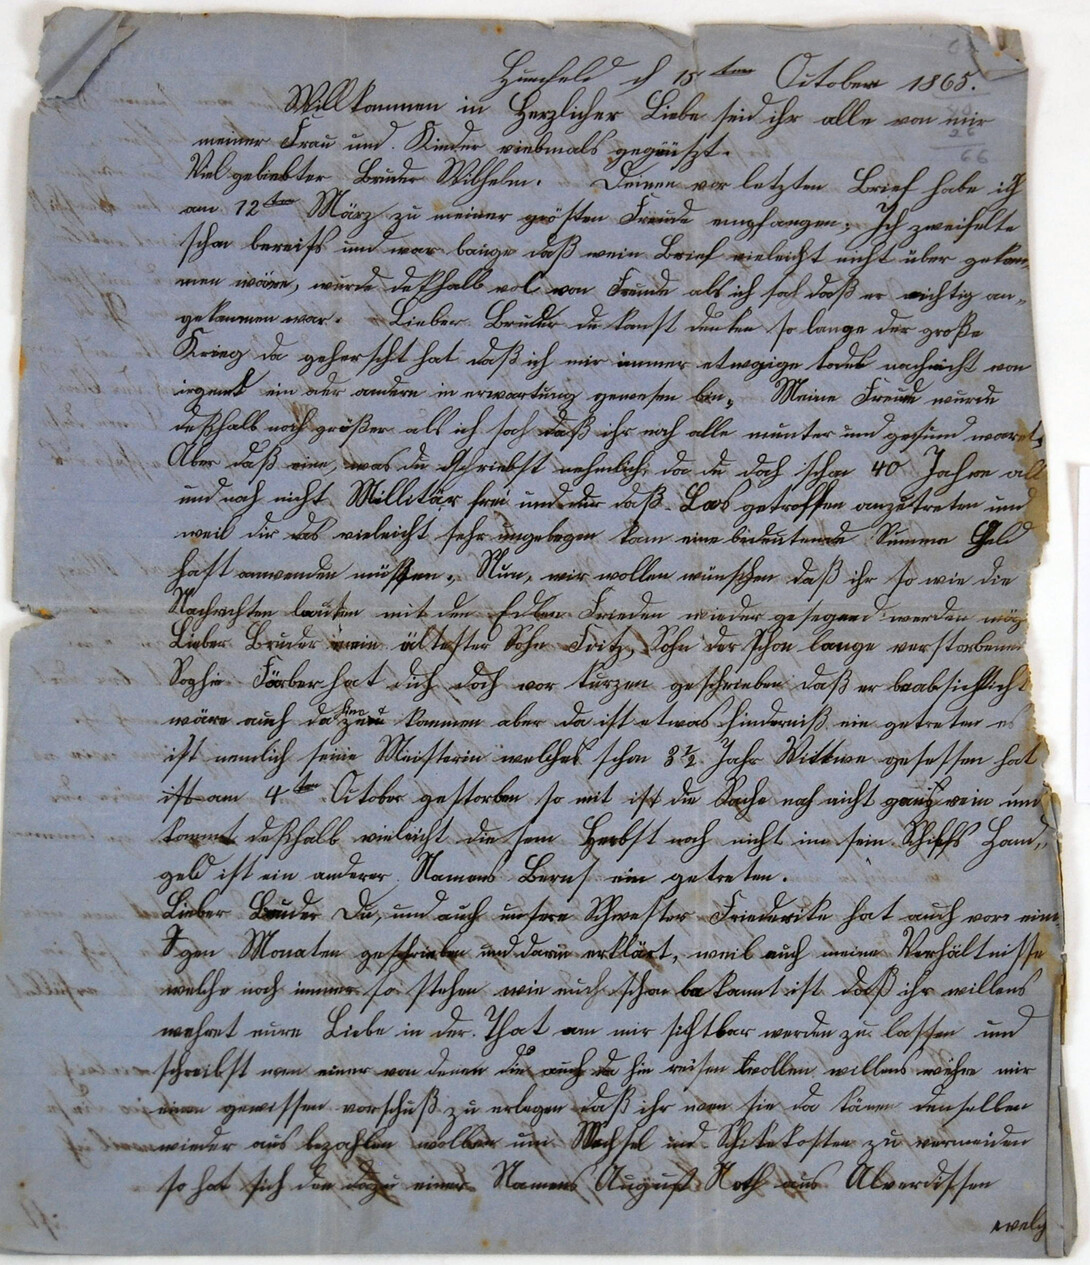 Humfeld d 15ten October 1865.
Willkommen in Herzlicher Liebe seid ihr alle von mir
meiner Frau und Kinder vielmals gegrüszt.
Vielgeliebter Bruder Wilhelm. Deinen vor letzten Brief habe ich
am 12ten März zu meiner grösten Freude empfangen; Ich zweifelte
schon bereits und war bange daß mein Brief vieleicht nicht über gekom„
men wäre, wurde deßhalb vol von Freude als ich sah daß er richtig an„
gekommen war. Lieber Bruder du kanst denken so lange der große
Krieg da geherscht hat daß ich mir immer etwaige todes nachricht von
irgent ein oder andern in erwartung gewesen bin, Meine Freude wurde
deßhalb noch größer als ich sah daß ihr noch alle munter und gesund waret,
Aber daß eine, was du schriebst nehmlich, da du doch schon 40 Jahre alt
und noch nicht Millitär frei und dir daß Loos getroffen anzutreten und
weil dir das vieleicht sehr ungelegen kam eine bedeutende Summe Geld
hast anwenden müßen, Nun, wir wollen wünschen daß ihr so wie die
Nachrichten lauten mit den Edlen Frieden wieder gesegend werden mög
Lieber Bruder mein ältester Sohn Fritz, Sohn der schon lange verstorbenen
Sophie Färber hat dich doch vor kurzen geschrieben daß er beabsichtlicht
wäre auch da zu kommen aber da ist etwas hinderniß ein getreten es
ist nemlich seine Meisterin welches schon 3½ Jahr Wittwe gesessen hat
ist am 4ten October gestorben so mit ist die Sache noch nicht ganz rein und
kommt deßhalb vieleicht die sem Herbst noch nicht in sein Schiffs Han„
geld ist ein anderer Namens Berns ein getreten.
Lieber Bruder Du, und auch unsere Schwester Friederike hat auch vore eini
gen Monaten geschrieben und darin erklärt, weil euch meine Verhältnisse
welche noch immer so stehen wie euch schon bekannt ist daß ihr willens
wehret eure Liebe in der That an mir sichtbar werden zu lassen und
schreibst wen einer von denen die auch da hin reisen wollen willens währe mir
einen gewissen vorschuß zu erlegen daß ihr wen sie da kämen denselben
wieder aus bezahlen wolten um Wechsel und Schikekosten zu vermeiden
so hat sich den dazu einer Namens August Noth aus Alverdissen
welch